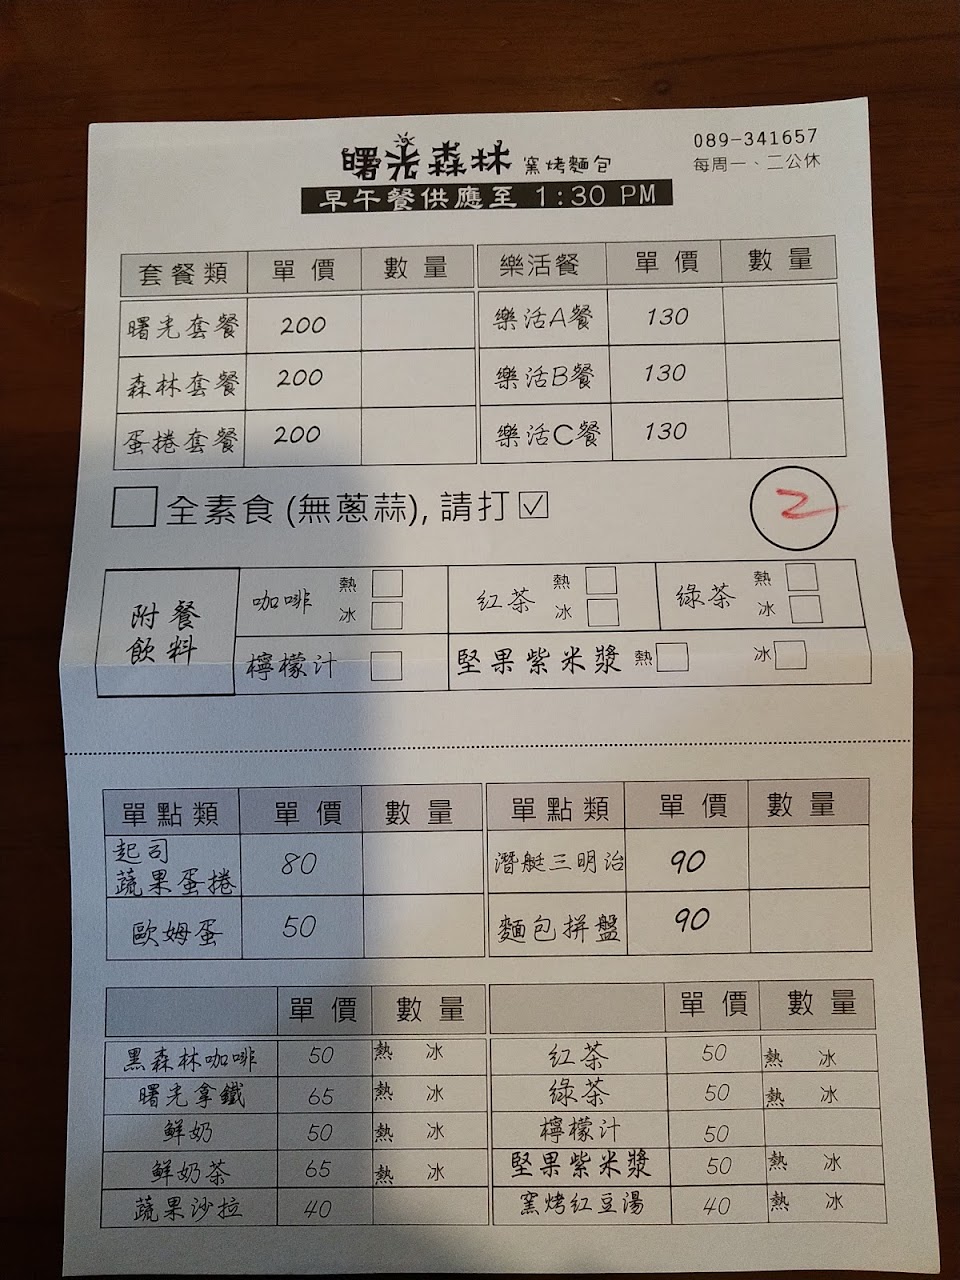 曙光森林 窯烤麵包
089-341657
每周一、二公休
早午餐供應至 1:30 PM
套餐類 單價 數量 樂活餐 單價 數量
曙光套餐 200 樂活A餐 130
森林套餐 200 樂活B餐 130
蛋捲套餐 200 樂活C餐 130
全素食 (無蔥蒜), 請打☑
2
附餐飲料
咖啡 熱 冰 紅茶 熱 冰 綠茶 熱 冰
檸檬汁 堅果紫米漿 熱 冰
單點類 單價 數量 單點類 單價 數量
起司
蔬果蛋捲 80 潛艇三明治 90
歐姆蛋 50 麵包拼盤 90
單價 數量 單價 數量
黑森林咖啡 50 熱 冰 紅茶 50 熱 冰
曙光拿鐵 65 熱 冰 綠茶 50 熱 冰
鮮奶 50 熱 冰 檸檬汁 50
鮮奶茶 65 熱 冰 堅果紫米漿 50 熱 冰
蔬果沙拉 40 窯烤紅豆湯 40 熱 冰